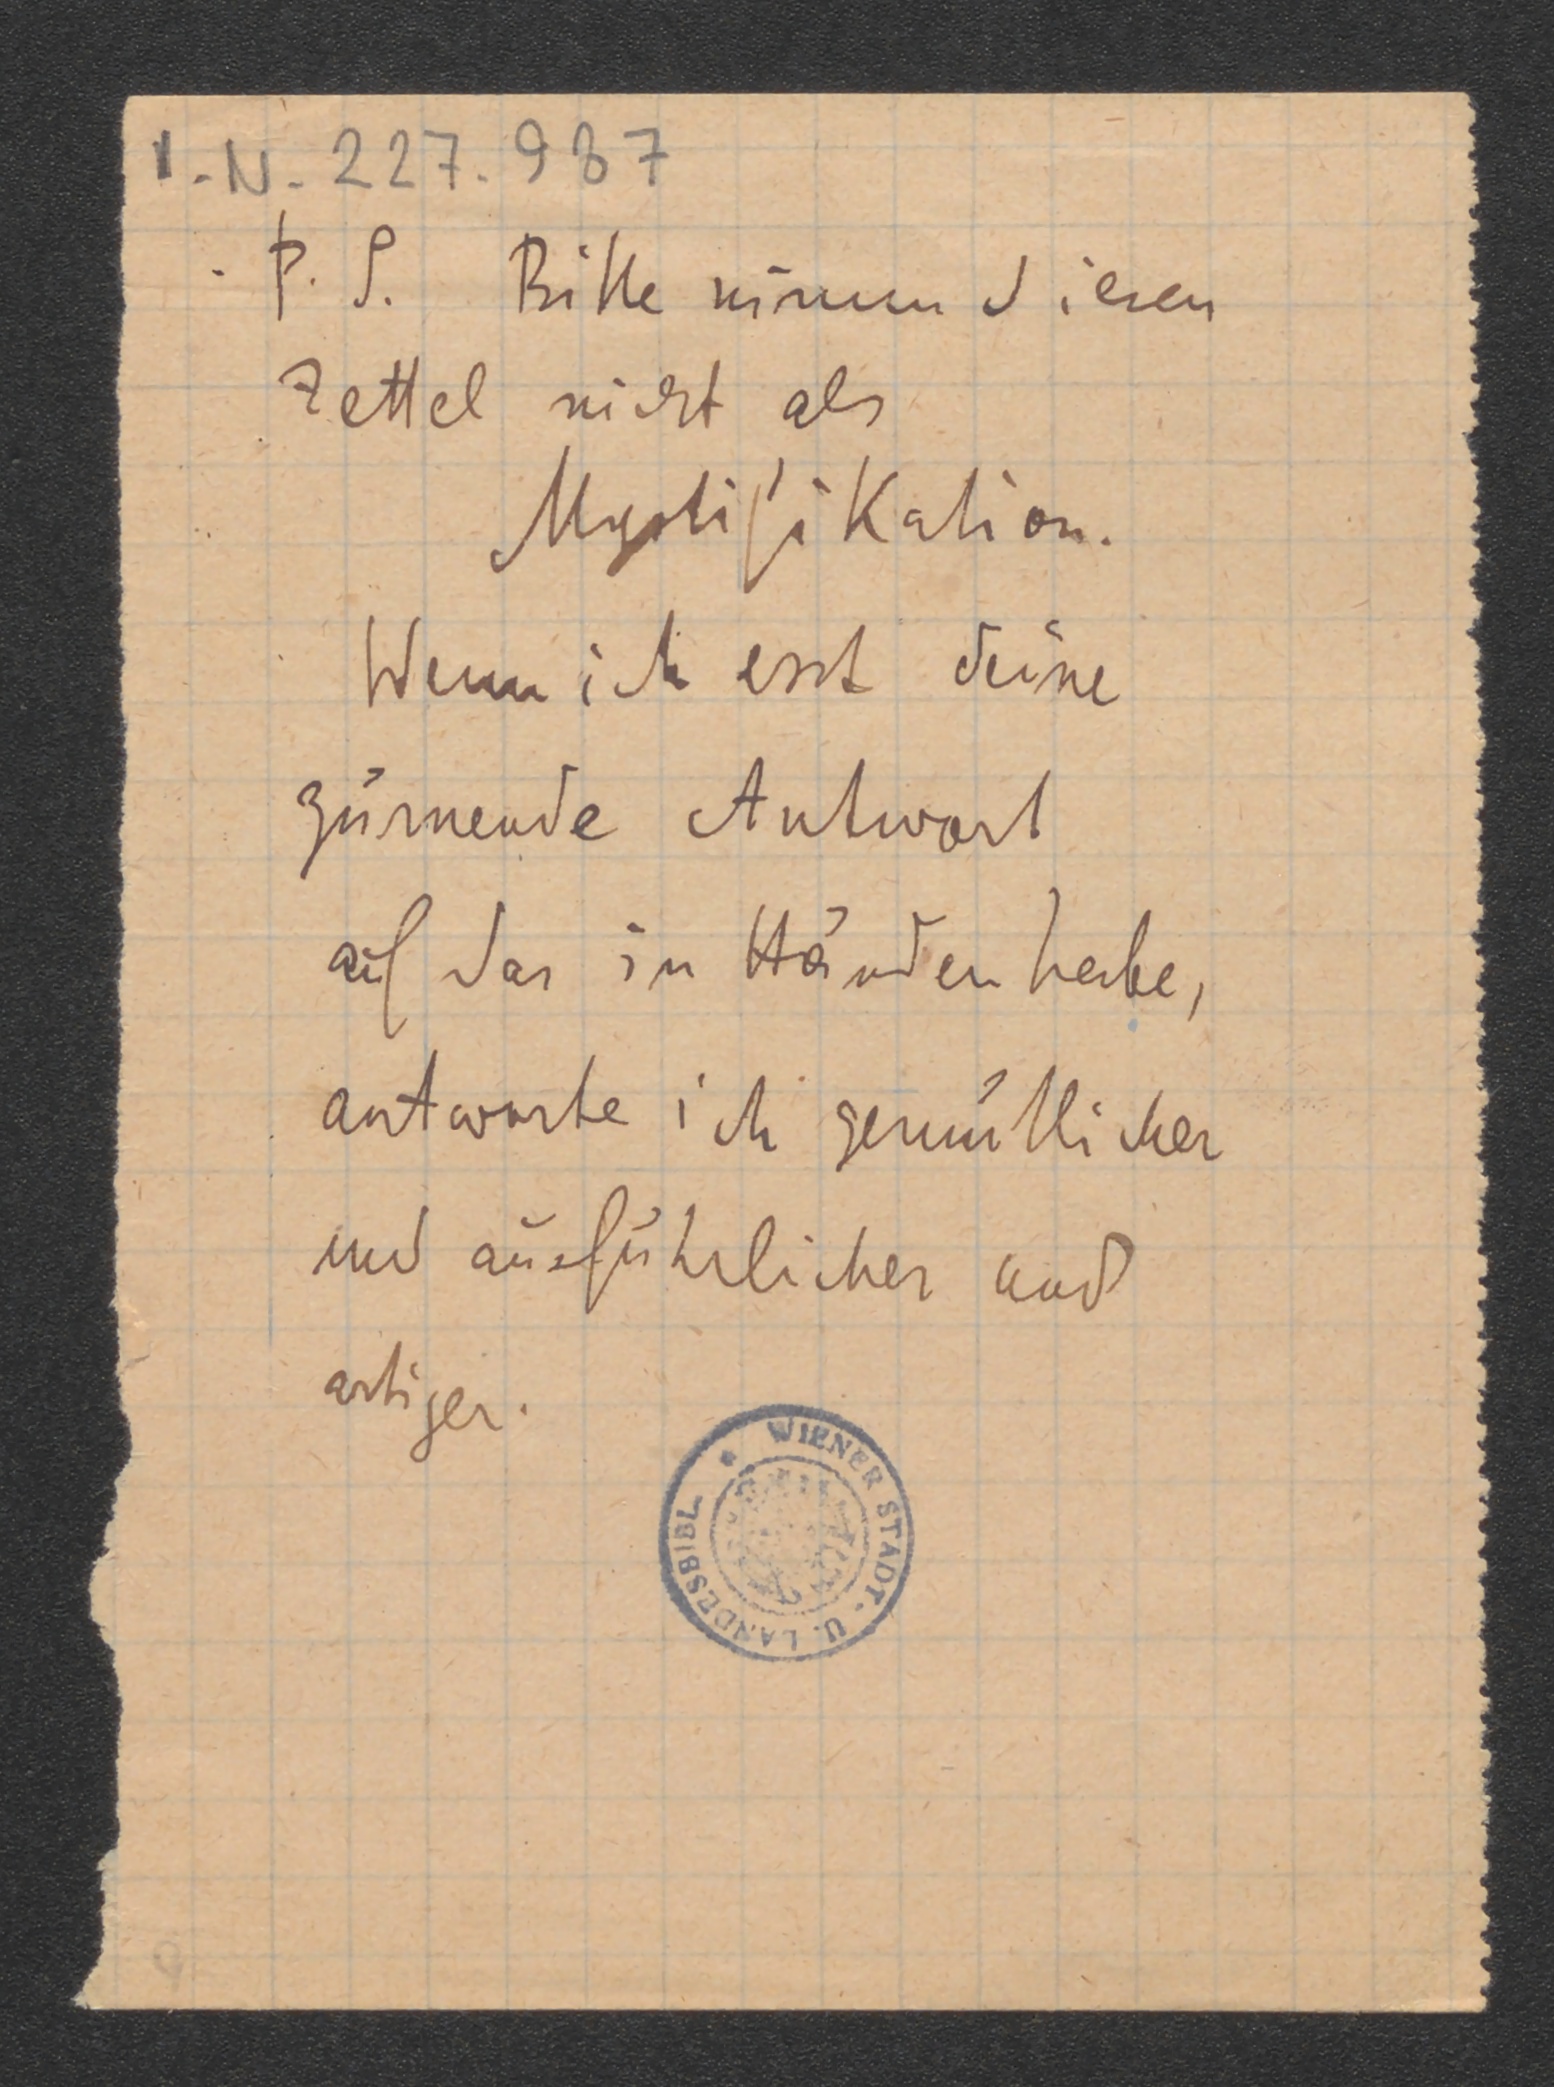 I.N. 227.987
P. S. Bitte nimm diesen
Zettel nicht als
Mystifikation.
Wenn ich erst deine
zürnende Antwort
auf das in Händen habe,
antworte ich gemütlicher
und ausführlicher und
artiger.
WIENER STADT- U. LANDESBIBL.
9